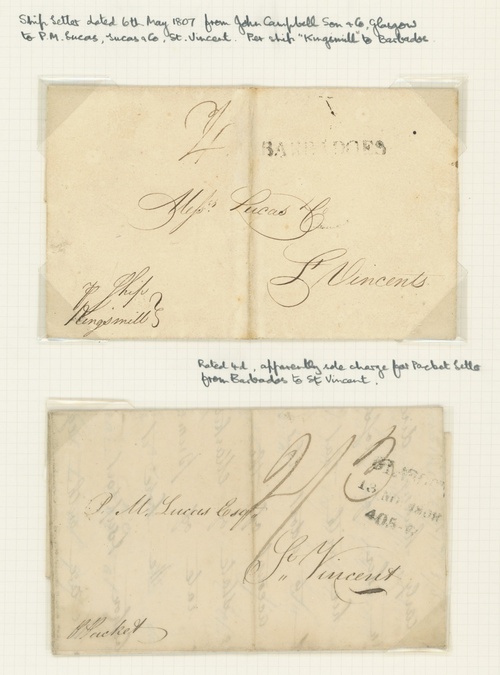 Ship Letter dated 6th May 1807 from John Campbell Son & Co, Glasgow
to P.M. Lucas, Lucas & Co, St. Vincent. Per ship "Kingsmill" to Barbados.
BARBADOES
Messrs Lucas & Co
St Vincents
p Ship
Kingsmill
Rated 4d, apparently sole charge for Packet Letter
from Barbados to St Vincent.
2/3
13
405
P. M. Lucas Esqr
St Vincent
p Packet